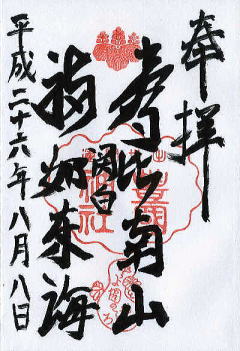 奉拝
寿比南山
関白
福如東海
平成二十六年八月八日